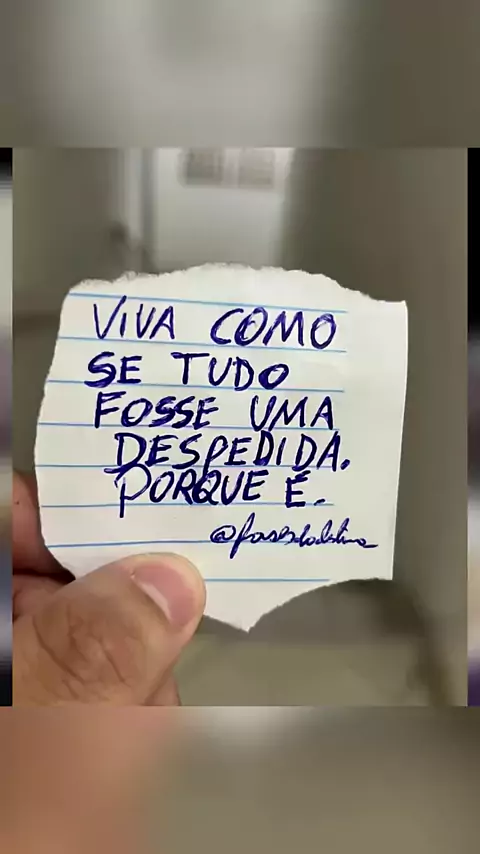 VIVA COMO
SE TUDO
FOSSE UMA
DESPEDIDA.
PORQUE É.